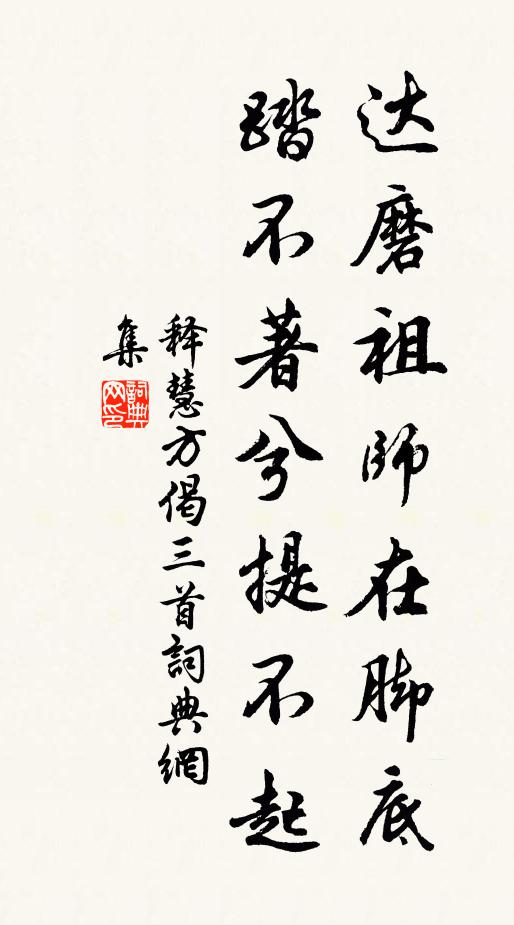 达磨祖師在脚底
踏不著兮提不起
释慧方偈三首詞典網
集
詞典
网印